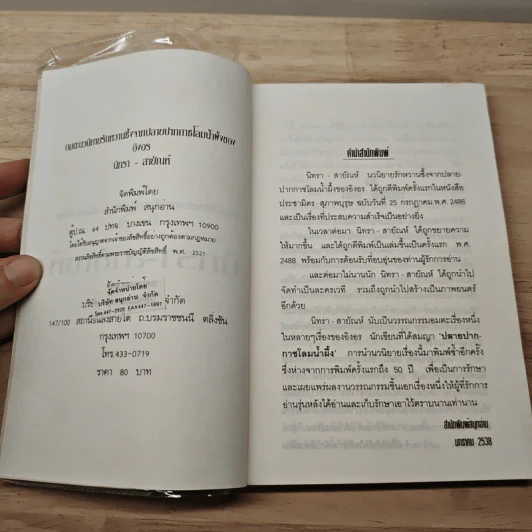 อมตะนวนิยายรักหวานซึ้งจากปลายปากกาชโลมน้ำผึ้งของ
อิงอร
นิทรา - สายัณห์
จัดพิมพ์โดย
สำนักพิมพ์ สนุกอ่าน
ตู้ปณ. 64 ปทจ. บางเขน กรุงเทพฯ 10900
โดยได้รับอนุญาตจากเจ้าของลิขสิทธิ์อย่างถูกต้องตามกฎหมาย
สงวนลิขสิทธิ์ตามพระราชบัญญัติลิขสิทธิ์ พ.ศ. 2521
จัดจำหน่ายโดย
บริษัท สนุกอ่าน จำกัด
โทร.447-2920 FAX.447-1697
จำกัด
147/100 ถ.บรมราชชนนี ตลิ่งชัน
กรุงเทพฯ 10700
โทร.433-0719
ราคา 80 บาท
คำนำสำนักพิมพ์
นิทรา - สายัณห์ นวนิยายรักหวานซึ้งจากปลาย-
ปากกาชโลมน้ำผึ้งของอิงอร ได้ถูกตีพิมพ์ครั้งแรกในหนังสือ
ประชามิตร สุภาพบุรุษ ฉบับวันที่ 25 กรกฎาคม พ.ศ. 2486
และเป็นเรื่องที่ประสบความสำเร็จเป็นอย่างยิ่ง
ในเวลาต่อมา นิทรา - สายัณห์ ได้ถูกขยายความ
ให้มากขึ้น และได้ถูกตีพิมพ์เป็นเล่มขึ้นเป็นครั้งแรก พ.ศ.
2488 พร้อมกับการต้อนรับที่อบอุ่นของท่านผู้รักการอ่าน
และต่อมาไม่นานนัก นิทรา - สายัณห์ ได้ถูกนำไป
จัดทำเป็นละครเวที รวมถึงถูกนำไปสร้างเป็นภาพยนตร์
อีกด้วย
นิทรา - สายัณห์ นับเป็นวรรณกรรมอมตะเรื่องหนึ่ง
ในหลายๆเรื่องของอิงอร นักเขียนที่ได้สมญา 'ปลายปาก-
กาชโลมน้ำผึ้ง' การนำนวนิยายเรื่องนี้มาพิมพ์ซ้ำอีกครั้ง
ซึ่งห่างจากการพิมพ์ครั้งแรกถึง 50 ปี เพื่อเป็นการรักษา
และเผยแพร่ผลงานวรรณกรรมชิ้นเอกเรื่องหนึ่งให้ผู้ที่รักการ
อ่านรุ่นหลังได้อ่านและเก็บรักษาเอาไว้ตราบนานเท่านาน
สำนักพิมพ์สนุกอ่าน
มกราคม 2538